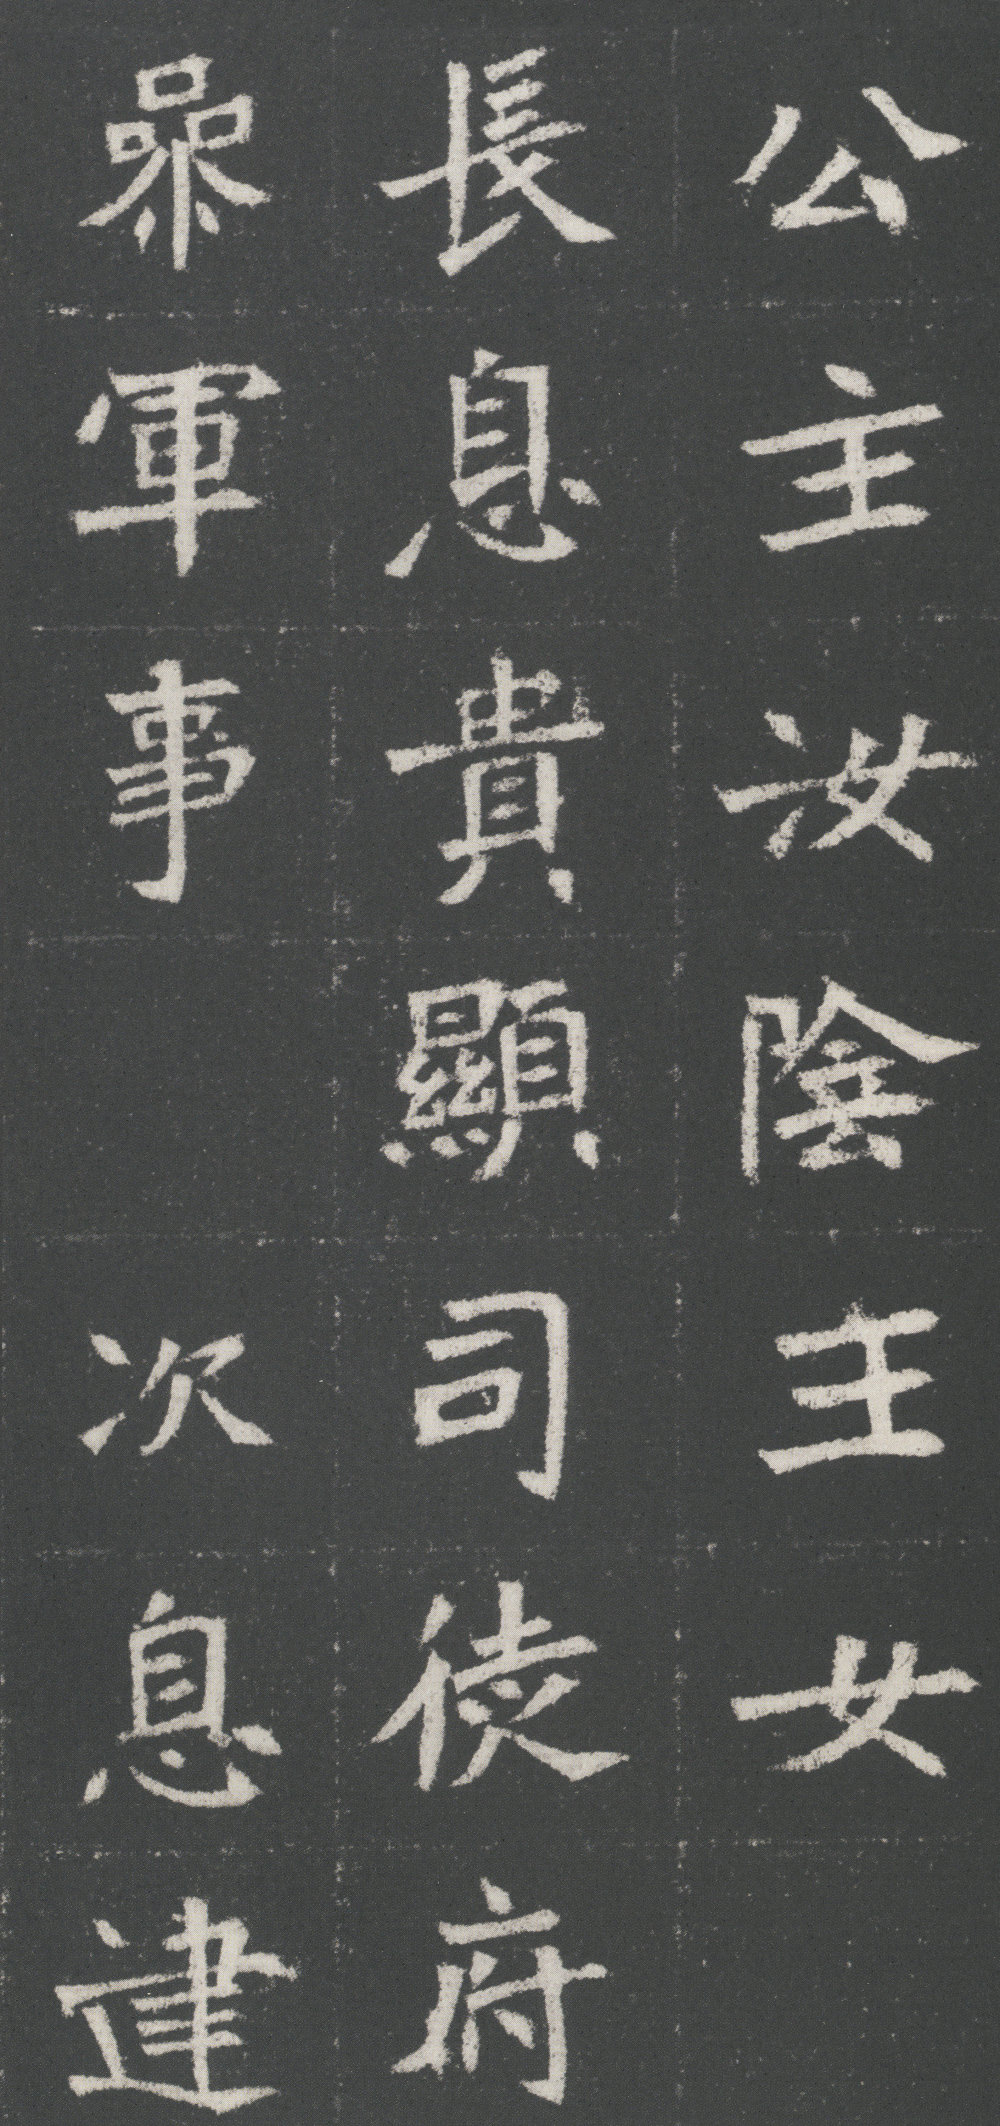 公主汝陰王女
長息貴顯司徒府
叅軍事 次息建